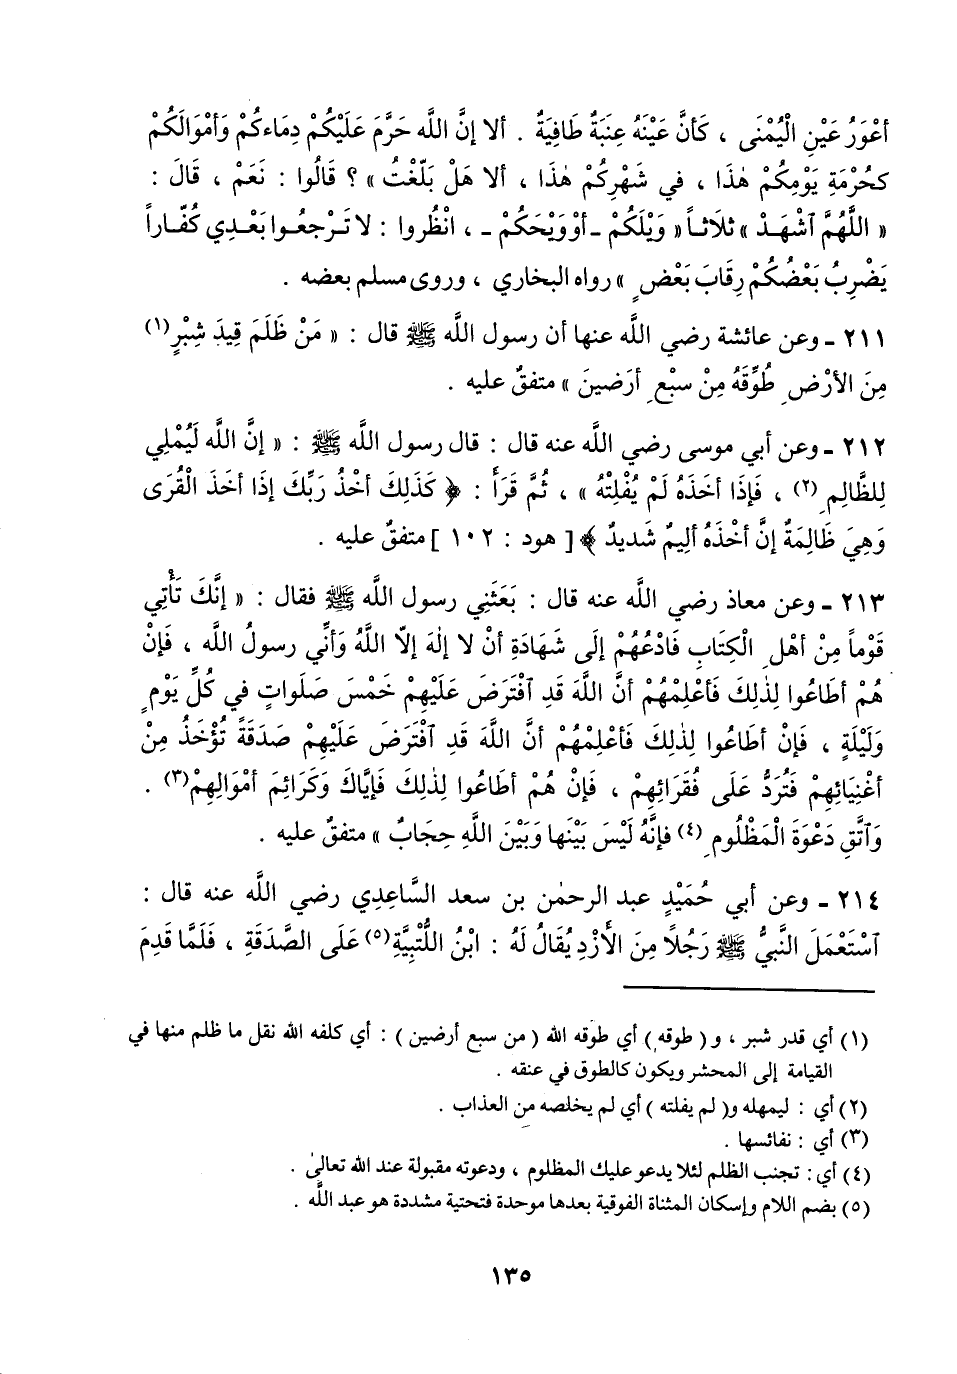 أعْوَرُ عَيْنِ الْيُمْنَى ، كَأنَّ عَيْنَهُ عِنَبَةٌ طَافِيَةٌ . ألا إنَّ اللَّه حَرَّمَ عَلَيْكُمْ دِمَاءكُمْ وَأمْوَالَكُمْ
كحُرْمَةِ يَوْمِكُمْ هٰذَا ، في شَهْرِكُمْ هٰذَا ، ألا هَلْ بَلّغْتُ » ؟ قَالُوا : نَعَمْ ، قَالَ :
« اللَّهُمَّ ٱشْهَدْ » ثلاثاً « وَيْلَكُمْ ـ أوْ وَيْحَكُمْ ـ ، انْظُروا : لا تَرْجعُوا بَعْدِي كُفّاراً
يَضْرِبُ بَعْضُكُمْ رِقَابَ بَعْضٍ » رواه البخاري ، وروى مسلم بعضه .
٢١١ ـ وعن عائشة رضي اللَّه عنها أن رسول اللَّه ﷺ قال : « مَنْ ظَلَمَ قِيدَ شِبْرٍ (١)
مِنَ الأرْضِ طُوِّقَهُ مِنْ سبْعِ أرَضينَ » متفقٌ عليه .
٢١٢ ـ وعن أبي موسى رضي اللَّه عنه قال : قال رسول اللَّه ﷺ : « إنَّ اللَّه لَيُمْلِي
لِلظَّالِمِ (٢) ، فَإذَا أخَذَهُ لَمْ يُفْلِتْهُ » ، ثُمَّ قَرَأَ : ﴿ كَذَلِكَ أخْذُ رَبِّكَ إذَا أخَذَ الْقُرَى
وَهِيَ ظَالِمَةٌ إنَّ أخْذَهُ ألِيمٌ شَديدٌ ﴾ [ هود : ١٠٢ ] متفقٌ عليه .
٢١٣ ـ وعن معاذ رضي اللَّه عنه قال : بَعَثَنِي رسول اللَّه ﷺ فقال : « إنَّكَ تَأْتِي
قَوْماً مِنْ أهْلِ الْكِتَابِ فَادْعُهُمْ إلَى شَهَادَةِ أنْ لا إلٰهَ إلاّ اللَّهُ وَأنِّي رسولُ اللَّه ، فَإنْ
هُمْ أطَاعُوا لِذٰلِكَ فَأعْلِمْهُمْ أنَّ اللَّهَ قَدِ ٱفْتَرَضَ عَلَيْهِمْ خَمْسَ صَلَواتٍ في كُلِّ يَوْمٍ
وَلَيْلَةٍ ، فَإنْ أطَاعُوا لِذٰلِكَ فَأعْلِمْهُمْ أنَّ اللَّهَ قَدِ ٱفْتَرَضَ عَلَيْهِمْ صَدَقَةً تُؤْخَذُ مِنْ
أغْنِيَائِهِمْ فَتُرَدُّ عَلَى فُقَرَائِهِمْ ، فَإنْ هُمْ أطَاعُوا لِذٰلِكَ فَإيَّاكَ وَكَرَائِمَ أمْوَالِهِمْ(٣) .
وَٱتَّقِ دَعْوَةَ الْمَظْلُومِ (٤) فإنَّهُ لَيْسَ بَيْنَها وَبَيْنَ اللَّهِ حِجَابٌ » متفقٌ عليه .
٢١٤ ـ وعن أبي حُمَيْدٍ عبد الرحمٰن بن سعد السَّاعِدِي رضي اللَّه عنه قال :
ٱسْتَعْمَلَ النَّبيُّ ﷺ رَجُلاً مِنَ الأَزْدِ يُقَالُ لَهُ : ابْنُ اللُّتْبِيَّةِ(٥) عَلَى الصَّدَقَةِ ، فَلَمَّا قَدِمَ
(١) أي قدر شبر ، و ( طوقه ) أي طوقه الله ( من سبع أرضين ) : أي كلفه الله نقل ما ظلم منها في
القيامة إلى المحشر ويكون كالطوق في عنقه .
(٢) أي : ليمهله و( لم يفلته ) أي لم يخلصه من العذاب .
(٣) أي : نفائسها .
(٤) أي : تجنب الظلم لئلا يدعو عليك المظلوم ، ودعوته مقبولة عند الله تعالىٰ .
(٥) بضم اللام وإسكان المثناة الفوقية بعدها موحدة فتحتية مشددة هو عبد اللَّه .
١٣٥